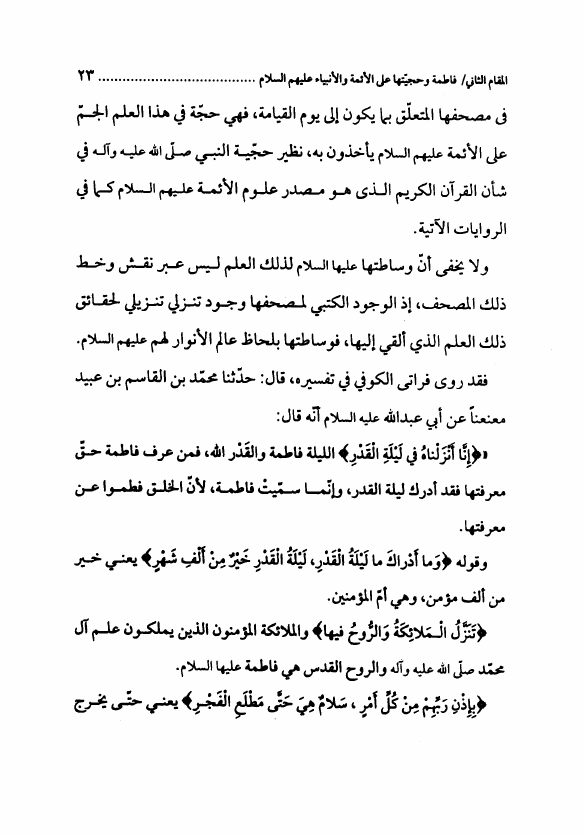 المقام الثاني/ فاطمة وحجيّتها على الأئمة والأنبياء عليهم السلام ........................................ ٢٣
في مصحفها المتعلّق بما يكون إلى يوم القيامة، فهي حجّة في هذا العلم الجـمّ
على الأئمة عليهم السلام يأخذون به، نظير حجّيـة النبـي صلّى الله عليـه وآلـه في
شأن القرآن الكريم الـذى هـو مـصدر علـوم الأئمـة عليـهم الـسلام كـما في
الروايات الآتية.
ولا يخفى أنّ وساطتها عليها السلام لذلك العلم ليـس عـبر نقـش وخـط
ذلك المصحف، إذ الوجود الكتبي لمـصحفها وجـود تنـزلي تنـزيلي لحقـائق
ذلك العلم الذي ألقي إليها، فوساطتها بلحاظ عالم الأنوار لهم عليهم السلام.
فقد روى فراتى الكوفي في تفسيره، قال: حدّثنا محمّد بن القاسم بن عبيد
معنعناً عن أبي عبدالله عليه السلام أنّه قال:
«﴿إِنَّا أَنْزَلْناهُ في لَيْلَةِ الْقَدْرِ﴾ الليلة فاطمة والقَدْر الله، فمن عرف فاطمة حقّ
معرفتها فقد أدرك ليلة القدر، وإنّـمـا سـمّيتْ فاطمـة، لأنّ الخلـق فطمـوا عـن
معرفتها.
وقوله ﴿وَما أَدْراكَ ما لَيْلَةُ الْقَدْرِ، لَيْلَةُ الْقَدْرِ خَيْرٌ مِنْ أَلْفِ شَهْرٍ﴾ يعنـي خـير
من ألف مؤمن، وهي أمّ المؤمنين.
﴿تَنَزَّلُ الْـمَلائِكَةُ وَالرُّوحُ فيها﴾ والملائكة المؤمنون الذين يملكـون علـم آل
محمّد صلّى الله عليه وآله والروح القدس هي فاطمة عليها السلام.
﴿بِإِذْنِ رَبِّهِمْ مِنْ كُلِّ أَمْرٍ ، سَلامٌ هِيَ حَتَّى مَطْلَعِ الْفَجْرِ﴾ يعنـي حتّـى يخـرج